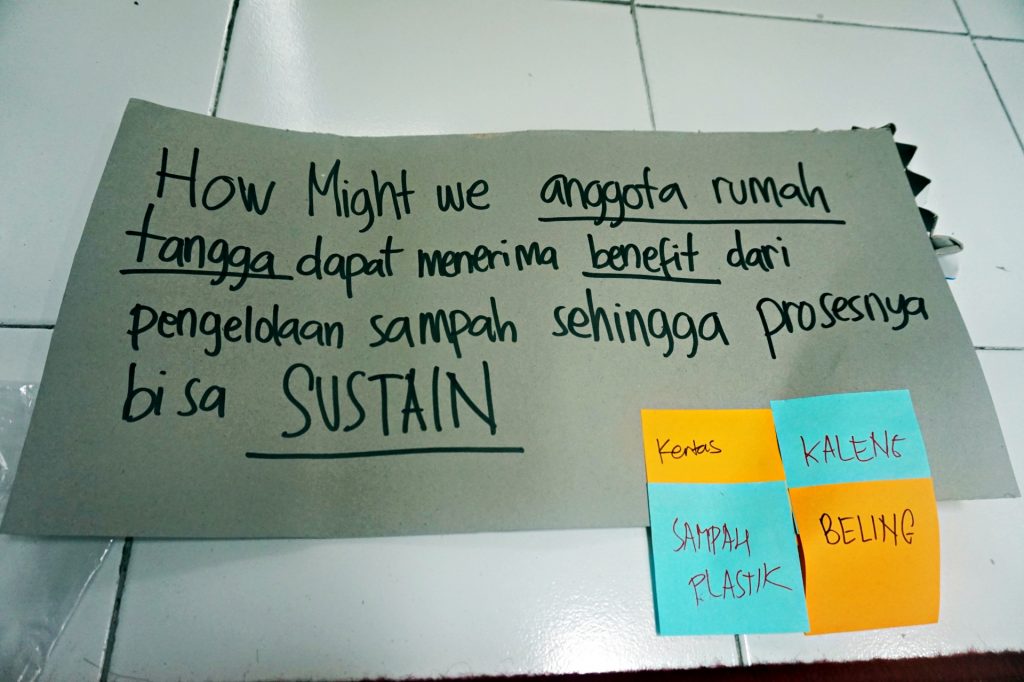 How Might we anggota rumah
tangga dapat menerima benefit dari
pengelolaan sampah sehingga prosesnya
bisa SUSTAIN
Kertas
KALENG
SAMPAH
PLASTIK
BELING